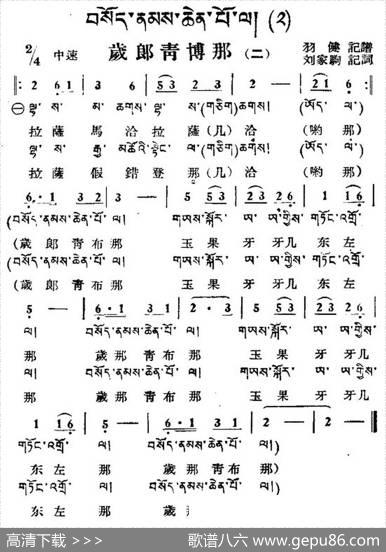 བསོད་ནམས་ཆེན་པོ་ལ། (༢)
2/4 中速 歲郎青博那 (二) 羽健記譜
刘家駒記詞
2 6 1 3 6 5 3 2 3 2 — 2 1 6
㊀ ལྷ་ས་ མ་ ཆགས་ ལྷ་ ས་(གཅིག)ཆགས། (ཨོད་ ལ།)
拉薩馬洽拉薩(几)洽 (喲那)
拉薩假錯登那(几)洽 (喲那)
6·1 3 2 3 — 5 5 3 2 3 2 6 1 1 6
(བསོད་ནམས་ཆེན་པོ་ ལ། གཡས་སྐོར་ ཨ་ ཨ་གྱིས་ གཏོང་འགྲོ་
(歲郎青布那 玉果牙牙几东左
(བསོད་ནམས་ཆེན་པོ་ ལ། གཡས་སྐོར་ ཨ་ ཨ་གྱིས་ གཏོང་འགྲོ་
(歲郎青布那 玉果牙牙几东左
5 — 6·1 3 1 2·3 5 5 3 2 3 2 6
ལ། བསོད་ནམས་ཆེན་པོ་ ལ། གཡས་སྐོར་ ཨ་ ཨ་གྱིས་
那 歲那青布那 玉果牙牙几
ལ། བསོད་ནམས་ཆེན་པོ་ ལ། གཡས་སྐོར་ ཨ་ ཨ་གྱིས་
那 歲那青布那 玉果牙牙几
1 1 6 5 — 6·1 3 1 2 — 2 —
གཏོང་འགྲོ་ ལ། བསོད་ནམས་ཆེན་པོ་ ལ།)
东左那 歲那青布那)
གཏོང་འགྲོ་ ལ། བསོད་ནམས་ཆེན་པོ་ ལ།)
东左那 歲
高清下载 >>> 歌谱八六 www.gepu86.com